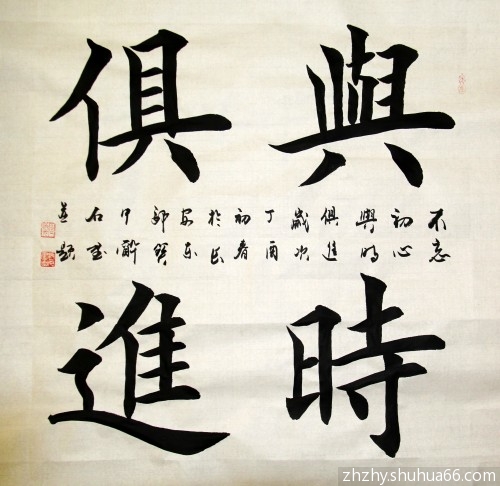 與時
俱進
不忘
初心
與時
俱進
歲次
丁酉
初春
於長
安東
郊
甲
石
並題
zhzhyshuhua66.com